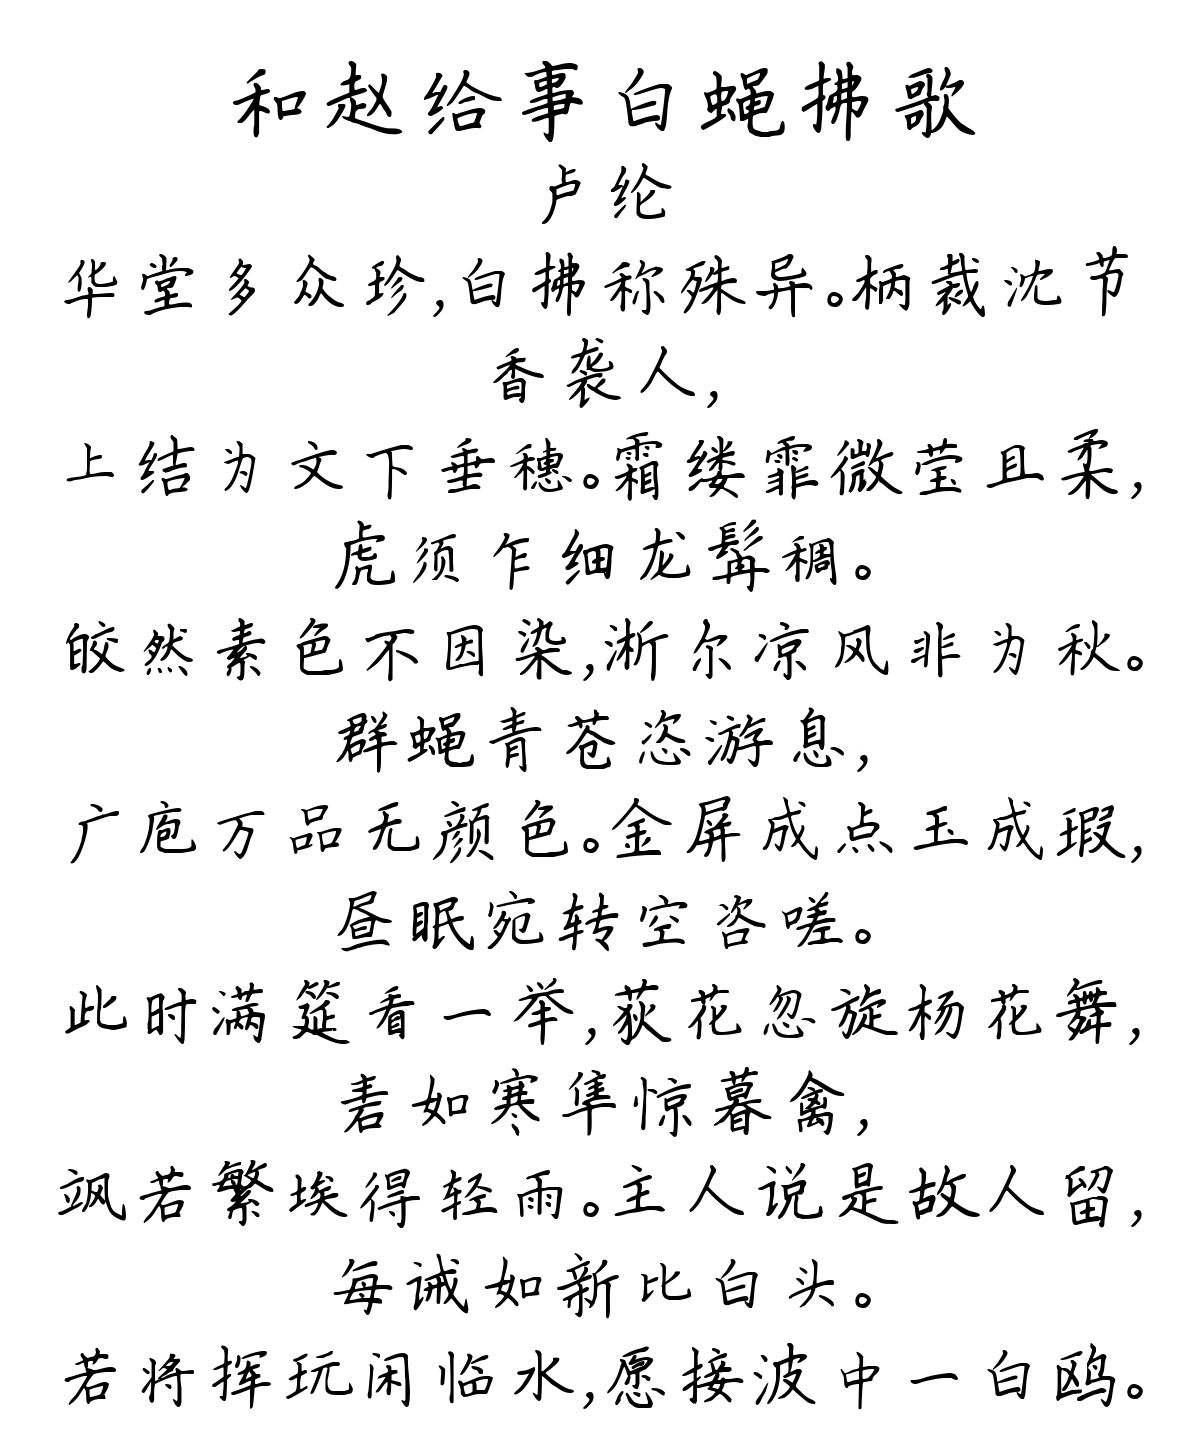 和赵给事白蝇拂歌
卢纶
华堂多众珍,白拂称殊异。柄裁沈节
香袭人,
上结为文下垂穗。霜缕霏微莹且柔,
虎须乍细龙髯稠。
皎然素色不因染,淅尔凉风非为秋。
群蝇青苍恣游息,
广庖万品无颜色。金屏成点玉成瑕,
昼眠宛转空咨嗟。
此时满筵看一举,荻花忽旋杨花舞,
砉如寒隼惊暮禽,
飒若繁埃得轻雨。主人说是故人留,
每诫如新比白头。
若将挥玩闲临水,愿接波中一白鸥。